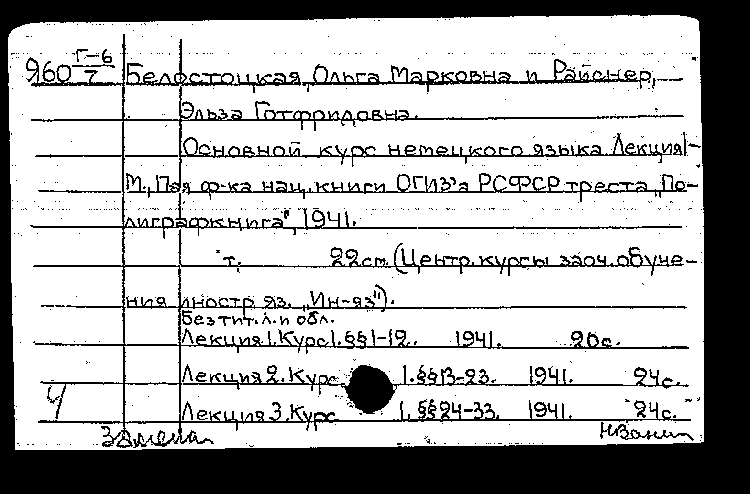 Я60 Г-6/7 Белостоцкая, Ольга Марковна и Райснер,
Эльза Готфридовна.
Основной курс немецкого языка. Лекция 1-
М., 1ая ф-ка нац. книги ОГИЗ'а РСФСР треста „По-
лиграфкнига", 1941.
т. 22 см. (Центр. курсы заоч. обуче-
ния иностр. яз. „Ин-яз").
Без тит. л. и обл.
Лекция 1. Курс 1. §§1-12. 1941. 20с.
Лекция 2. Курс 1. §§13-23. 1941. 24с.
Ч Лекция 3. Курс 1. §§24-33. 1941. 24с.
Замена